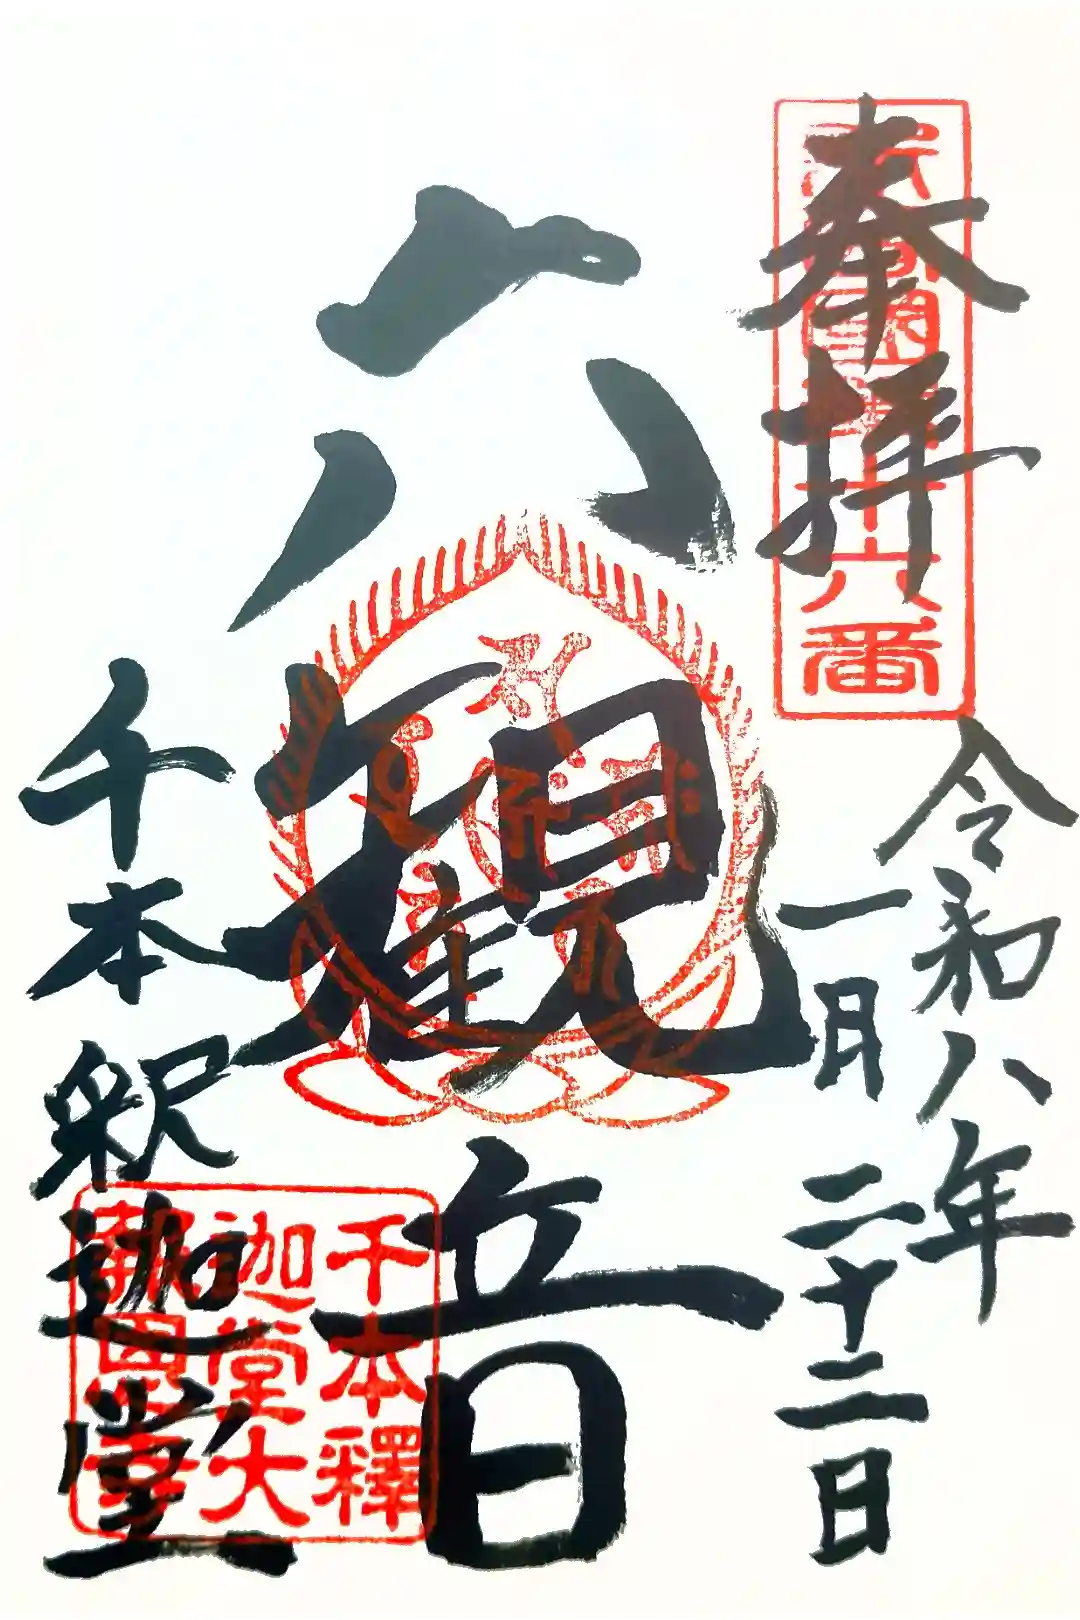 奉拝
令和八年
一月二十二日
六観音
千本釈迦堂
十六番
千本釋
迦堂大
報恩寺